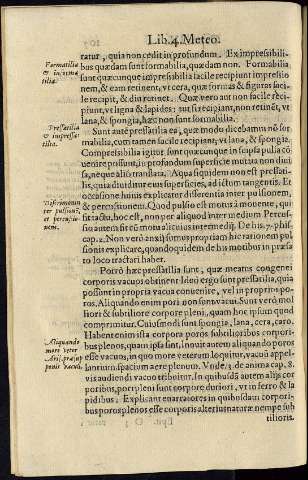 Lib. 4. Meteo.
ratur, quia non cedit in profundum. Ex impressibili-
bus quædam sunt formabilia, quædam non. Formabilia
sunt quæcunque impressibilia facile recipiunt impressio
nem, & eam retinent, vt cera, quæ formas & figuras faci-
le recipit, & diu retinet. Quæ vero aut non facile reci-
piunt, vt lagna & lapides: aut si recipiant, non retinēt, vt
lana, & spongia, hæc non sunt formabilia.
Formatilia
& informa
tilia.
Sunt autē pressatilia ea, quæ modo dicebamus nō for
mabilia, cum tamen facile recipiant, vt lana, & spongia.
Compressibilia igitur sunt quæcunque in seipsa pulsa cō
uenire possunt, in profundum superficie mutata non diui
sa, neque alio translata. Aqua siquidem non est pressati-
lis, quia diuiditur eius superficies, ad ictum tangentis. Et
occasione huius explicatur differentia inter pulsionem,
& percussionem. Quod pulsio est motus à mouente, qui
fit tactu, hoc est, non per aliquod intermedium Percus-
sio autem fit cū motu alicuius intermedij. De his. 7. phis.
cap. 2. Non verò anxij sumus propriam hic rationem pul
sionis explicare, quando quidem de his motibus in præsa
to loco tractari habet.
Pressatilia
& impressa-
tilia.
Discrimen in
ter pulsionē,
et percussio
nem.
Porrò hæc pressatilia sunt, quæ meatus congenei
corporis vacuos obtinent Ideò ergo sunt pressatilia, quia
possunt in propria vacua conuenire, vel in proprios po-
ros. Aliquando enim pori non sunt vacui. Sunt verò mol
liori & subtiliore corpore pleni, quam hoc ipsum quod
comprimitur. Cuiusmodi sunt spongia, lana, cera, caro.
Habent enim ista corpora poros subtilioribus corpori-
bus plenos, quam ipsa sint, innuit autem aliquando poros
esse vacuos, in quo more veterum loquitur, vacuū appel-
lantium spacium aere plenum. Vnde. 3. de anima cap. 8.
vis audiendi vacuo tribuitur. In quibusdā autem alijs cor
poribus, pori pleni sunt corpore duriori, vt in ferro & la
pidibus. Explicant enarratores in quibusdam corpori-
bus poros plenos esse corporis alterius naturæ nempe sub
tilioris.
Aliquando
more veter
Arist. præsup
ponit vacuū.